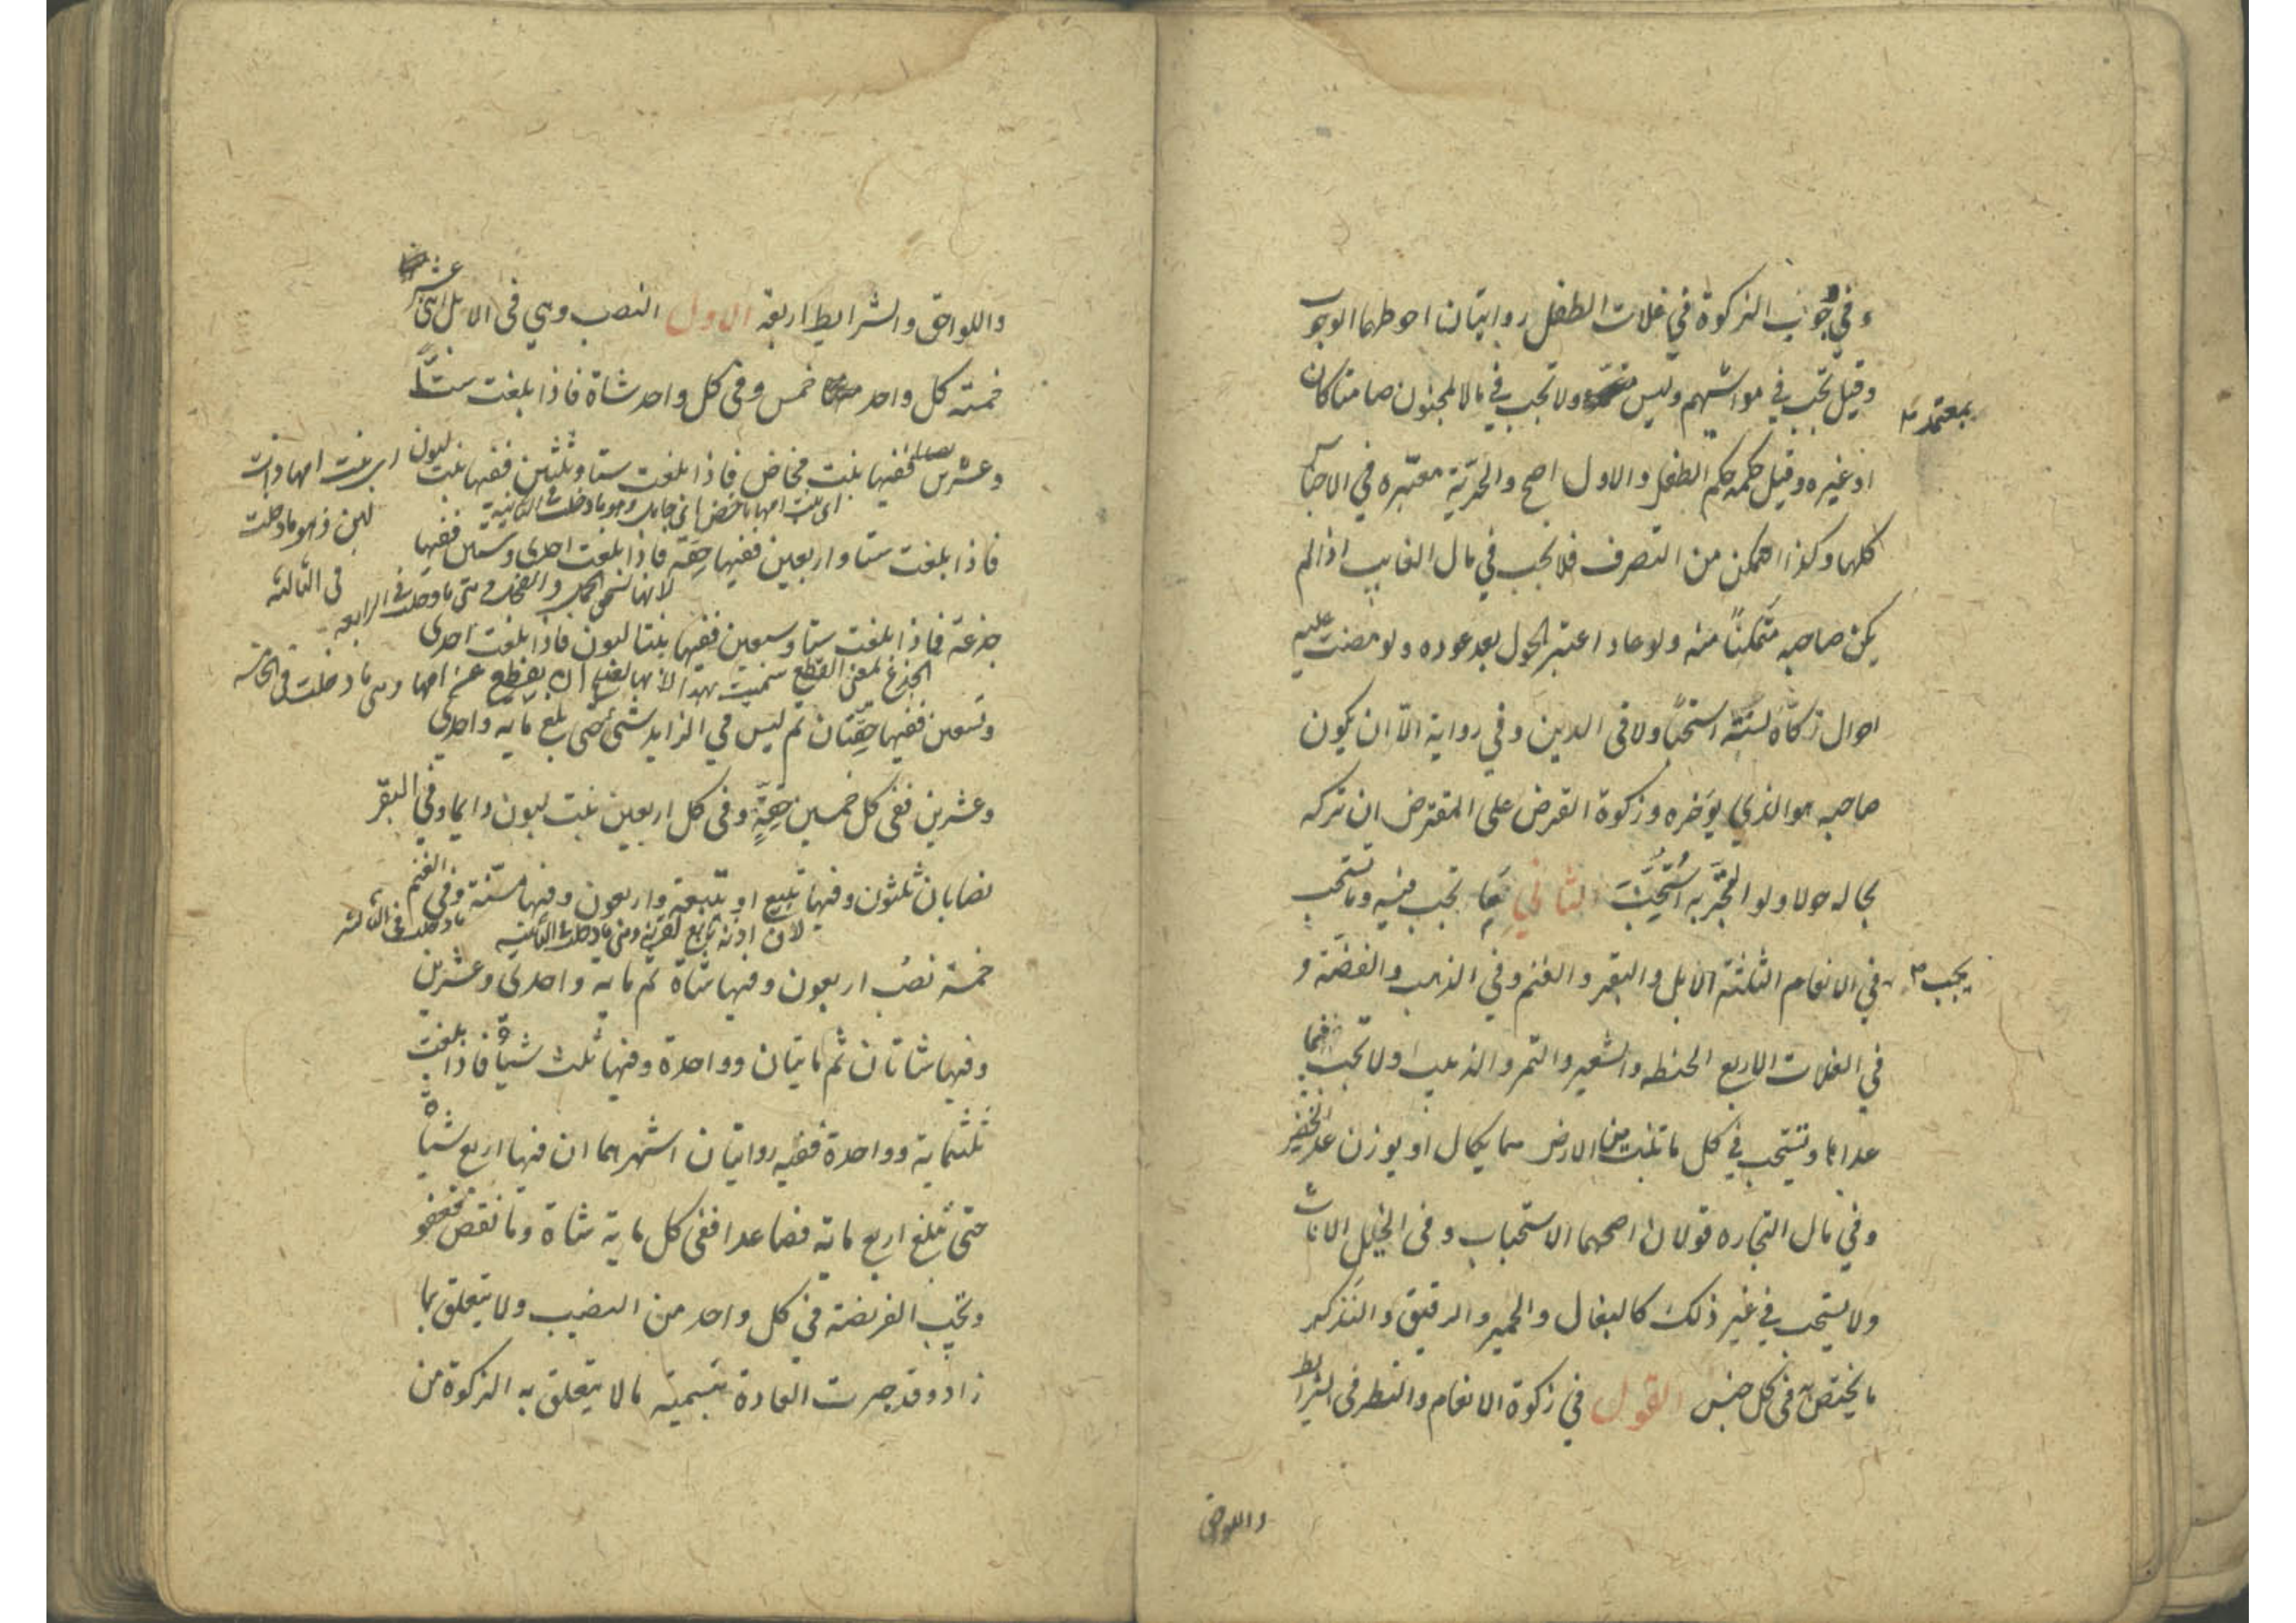 و في وجوب الزكوة في غلات الطفل روايتان احوطهما الوجوب
وقيل تجب في مواشيهم وليس بمعتمد ولا تجب في مال المجنون صامتا كان
او غيره وقيل حكمه حكم الطفل والاول اصح والحرية معتبرة في الاجناس
كلها وكذا التمكن من التصرف فلا تجب في مال الغايب اذا لم
يكن صاحبه متمكنا منه ولو عاد اعتبر الحول بعد عوده ولو مضت عليه
احوال زكاه لسنة استحبابا ولا في الدين وفي رواية الا ان يكون
صاحبه هو الذي يؤخره وزكوة القرض على المقترض ان تركه
بحاله حولا ولو اتجر به استحبت الثاني فيما تجب فيه وما تستحب
يجب في الانعام الثلثة الابل والبقر والغنم وفي الذهب والفضة و
في الغلات الاربع الحنطه والشعير والتمر والزبيب ولا تجب فيما
عداها وتستحب في كل ما تنبت من الارض مما يكال او يوزن عدا الخضر
وفي مال التجاره قولان اصحهما الاستحباب وفي الخيل الاناث
ولا يستحب في غير ذلك كالبغال والحمير والرقيق ولنذكر
ما يختص به في كل جنس القول في زكوة الانعام والنظر في الشرايط
واللواحق
واللواحق والشرايط اربعة الاول النصب وهي في الابل اثنى عشر
خمسة كل واحد خمس وفي كل واحد شاة فاذا بلغت ستا
وعشرين ففيها بنت مخاض فاذا بلغت ستا وثلثين ففيها بنت لبون
اى بنت امها ماخض اى حامل وهو ما دخلت الثانية
اى بنت امها ذات
لبن وهو ما دخلت
في الثالثه
فاذا بلغت ستا واربعين ففيها حقة فاذا بلغت احدى وستين ففيها
لانها تستحق الحمل والفحل وهي ما دخلت في الرابعه
جذعة فاذا بلغت ستا وسبعين ففيها بنتا لبون فاذا بلغت احدى
الجذع لمعنى القطع سميت بهذا لانها ان يقطع عن امها وهي ما دخلت في الخامسة
وتسعين ففيها حقتان ثم ليس في الزايد شئ حتى بلغ ماية واحدى
وعشرين ففى كل خمسين حقة وفى كل اربعين بنت لبون دايما وفي البقر
نصابان ثلثون وفيها تبيع او تبيعة واربعون وفيها مسنة وفى الغنم
لان اذنه تتبع قرنه وهي ما دخلت الثانيه
ما دخلت في الثالثه
خمسة نصب اربعون وفيها شاة ثم ماية واحدى وعشرين
وفيها شاتان ثم مايتان وواحدة وفيها ثلث شياه فاذا بلغت
ثلثماية وواحدة ففيه روايتان اشهرهما ان فيها اربع شياه
حتى تبلغ اربع ماية فصاعدا ففى كل ماية شاة وما نقص فعفو
وتجب الفريضة في كل واحد من النصب ولا يتعلق بما
زاد وقد جرت العادة بتسمية ما لا يتعلق به الزكوة من